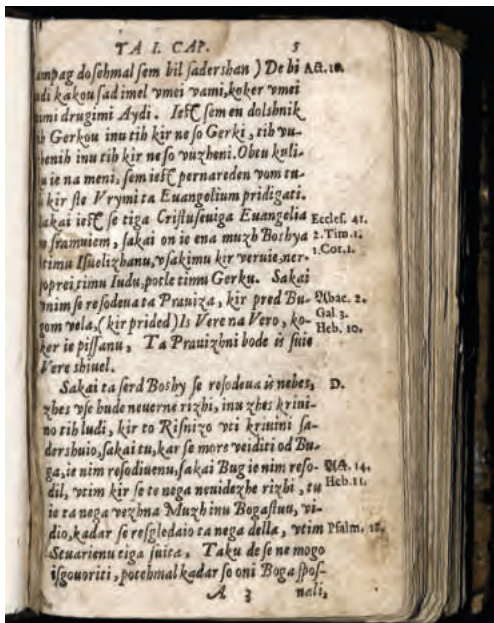 TA I. CAP. 5
mpag doſehmal ſem bil ſadershan ) De bi Act. 10.
udi kakou ſad imel vmei vami, koker vmei
imi drugimi Aydi. Ieſt ſem en dolshnik
Gerkou inu tih kir ne ſo Gerki, tih vu-
henih inu tih kir ne ſo vuzheni. Obtu kuli-
ie na meni, ſem ieſt pernareden vom tu-
kir ſte V rymi ta Euangelium pridigati.
akai ieſt ſe tiga Criſtuſeuiga Euangelia Eccleſ. 41.
ſramuiem, ſakai on ie ena muzh Boshya 2. Tim. 1.
timu Iſuelizhanu, vſakimu kir veruie, ner- 1. Cor. 1.
poprei timu Iudu, potle timu Gerku. Sakai
vnim ſe reſodeua ta Prauiza, kir pred Bu- Abac. 2.
gom vela, (kir prided) Is Vere na Vero, ko- Gal. 3.
ker ie piſſanu, Ta Prauizhni bode is ſuie Heb. 10.
Vere shiuel.
Sakai ta ſerd Boshy ſe reſodeua is nebes, D.
zhes vſe hude neuerne rizhi, inu zhes kriui-
no tih ludi, kir to Riſnizo vti kriuini ſa-
dershuio, ſakai tu, kar ſe more veiditi od Bu-
ga, ie nim reſodiuenu, ſakai Bug ie nim reſo- Act. 14.
dil, vtim kir ſe te nega neuidezhe rizhi, tu Heb. 11.
ie ta nega vezhna Muzh inu Bogaſtuu, vi-
dio, kadar ſe reſgledaio ta nega della, vtim Pſalm. 18.
Stuarienu tiga ſuita, Taku de ſe ne mogo
iſgouoriti, potehmal kadar ſo oni Boga ſpoſ-
A 3 nali,